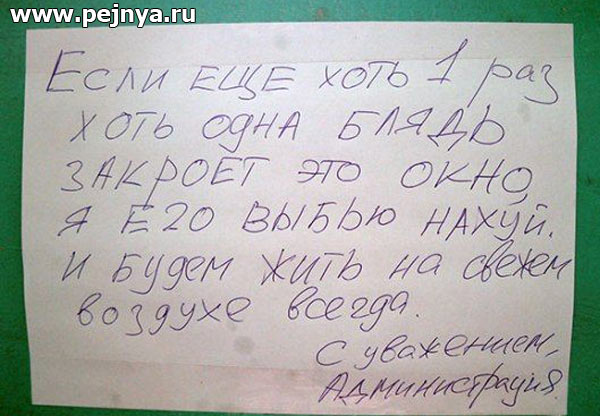 www.pejnya.ru
Если еще хоть 1 раз
хоть одна блядь
закроет это окно,
я его выбью нахуй.
и будем жить на свежем
воздухе всегда.
С уважением,
Администрация.